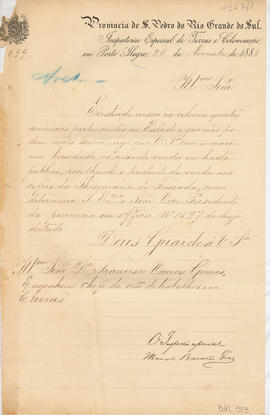 Provincia de S. Pedro do Rio Grande do Sul.
Inspectoria Especial de Terras e Colonisação,
em Porto Alegre, 26 de Novembro de 1885
Illmo Snr.
Existindo nessa ex colonia quatro
animaes pertencentes ao Estado e que não po-
dem mais servir, que V. Sª com a maior
brevidade os mande vender em hasta
publica, recolhendo o producto da venda aos
cofres da Thesouraria de Fazenda, como
determina S. Excia o Snr. Vice Presidente
da provincia em officio Nº 1527 de hoje
datado.
Deus Guarde a V. Sª
Illmo Snr. Dr. Francisco Xavier Gomes,
Engenheiro chefe da de trabalhos em
Caxias
O Inspector especial
Manoel
DIR 913